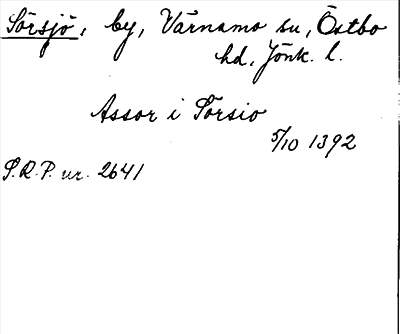 Sörsjö, by, Värnamo sn, Östbo
hd, Jönk. l.
Assor i Sörsio
5/10 1392
S.R.P. nr. 2641